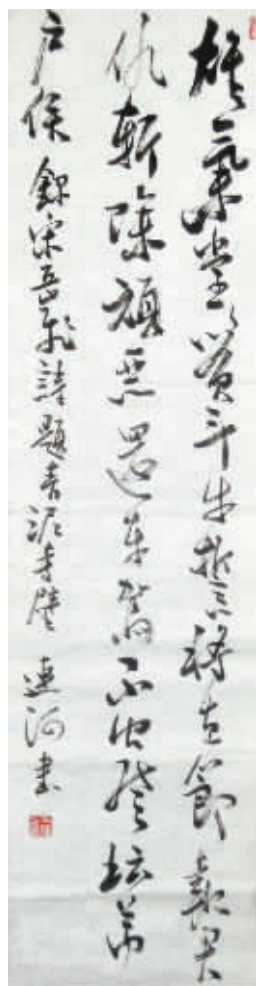 雄氣堂々貫斗牛誓将直節報君
仇斬除頑恶還车駕不问登坛萬
户侯 錄宋岳飛詩題青泥寺壁 連河書